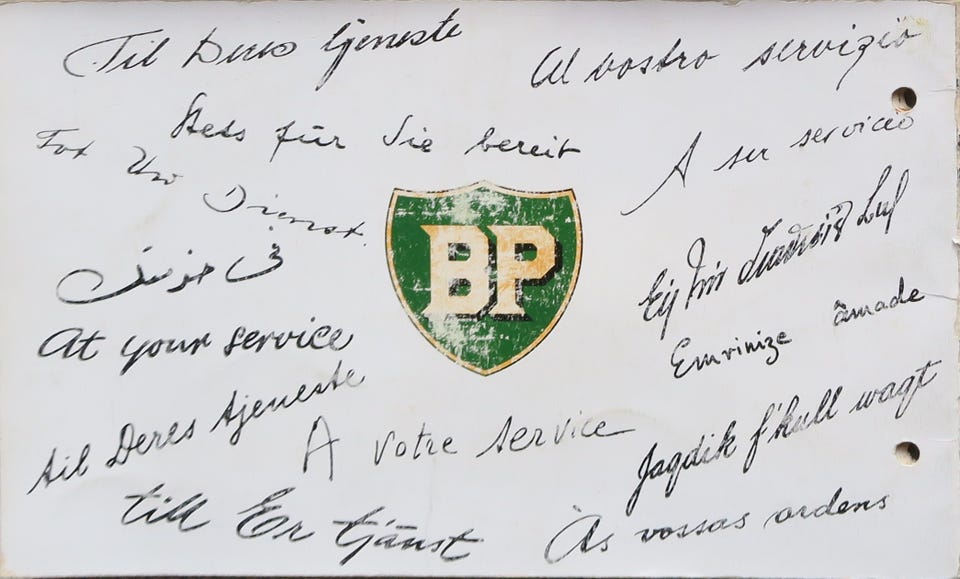 Til Deres tjeneste
Al vostro servizio
Stets für Sie bereit
A su servicio
Tot Uw Dienst.
في خدمتك
BP
Emrinize âmade
At your service
til Deres tjeneste
A votre service
Jagdik f'kull waqt
till Er tjänst
Às vossas ordens